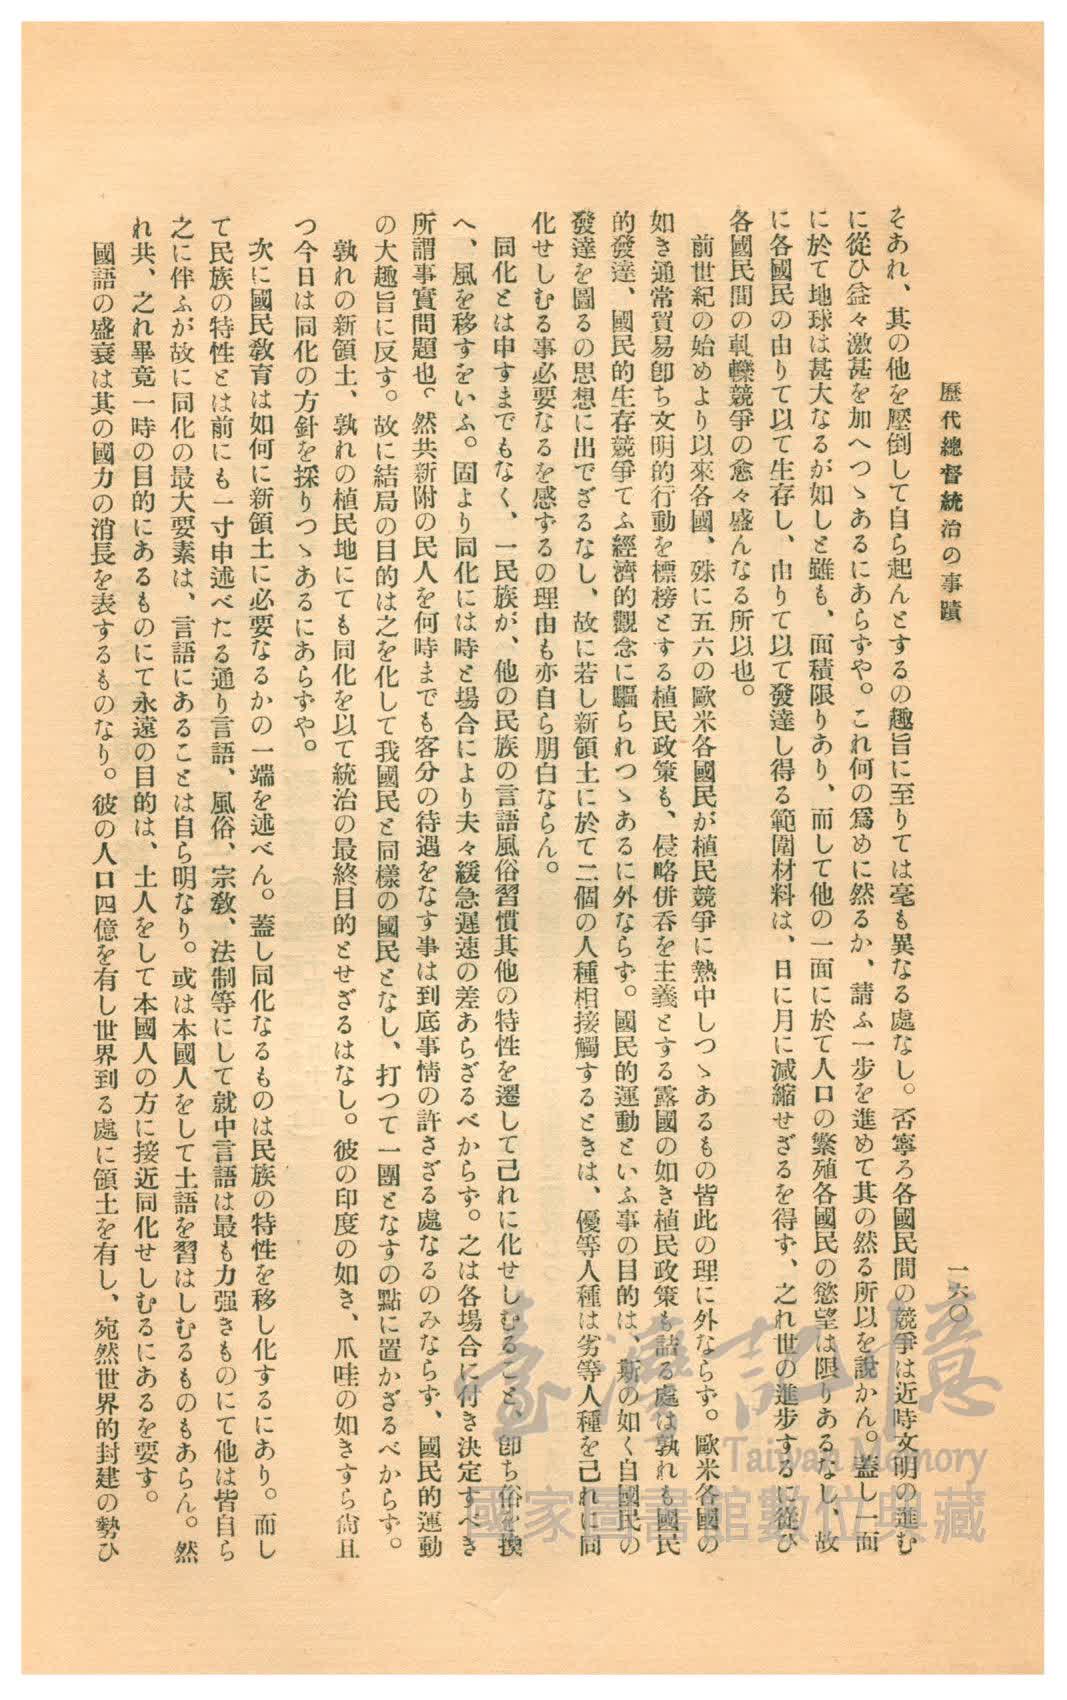 歷代總督統治の事蹟
一六〇
そあれ、其の他を壓倒して自ら起んとするの趣旨に至りては毫も異なる處なし。否寧ろ各國民間の競爭は近時文明の進む
に從ひ益々激甚を加へつゝあるにあらずや。これ何の爲めに然るか、請ふ一步を進めて其の然る所以を說かん。蓋し一面
に於て地球は甚大なるが如しと雖も、面積限りあり、而して他の一面に於て人口の繁殖各國民の慾望は限りあるなし、故
に各國民の由りて以て生存し、由りて以て發達し得る範圍材料は、日に月に減縮せざるを得ず、之れ世の進步するに從ひ
各國民間の軋轢競爭の愈々盛んなる所以也。
前世紀の始めより以來各國、殊に五六の歐米各國民が植民競爭に熱中しつゝあるもの皆此の理に外ならず。歐米各國の
如き通常貿易卽ち文明的行動を標榜とする植民政策も、侵略併吞を主義とする露國の如き植民政策も詰る處は孰れも國民
的發達、國民的生存競爭てふ經濟的觀念に驅られつゝあるに外ならず。國民的運動といふ事の目的は、斯の如く自國民の
發達を圖るの思想に出でざるなし、故に若し新領土に於て二個の人種相接觸するときは、優等人種は劣等人種を己れに同
化せしむる事必要なるを感ずるの理由も亦自ら明白ならん。
同化とは申すまでもなく、一民族が、他の民族の言語風俗習慣其他の特性を遷して己れに化せしむること、卽ち俗を換
へ、風を移すをいふ。固より同化には時と場合により夫々緩急遲速の差あらざるべからず。之は各場合に付き決定すべき
所謂事實問題也。然共新附の民人を何時までも客分の待遇をなす事は到底事情の許さざる處なるのみならず、國民的運動
の大趣旨に反す。故に結局の目的は之を化して我國民と同樣の國民となし、打つて一團となすの點に置かざるべからず。
孰れの新領土、孰れの植民地にても同化を以て統治の最終目的とせざるはなし。彼の印度の如き、爪哇の如きすら尙且
つ今日は同化の方針を採りつゝあるにあらずや。
次に國民敎育は如何に新領土に必要なるかの一端を述べん。蓋し同化なるものは民族の特性を移し化するにあり。而し
て民族の特性とは前にも一寸申述べたる通り言語、風俗、宗敎、法制等にして就中言語は最も力强きものにて他は皆自ら
之に伴ふが故に同化の最大要素は、言語にあることは自ら明なり。或は本國人をして土語を習はしむるものもあらん。然
れ共、之れ畢竟一時の目的にあるものにて永遠の目的は、土人をして本國人の方に接近同化せしむるにあるを要す。
國語の盛衰は其の國力の消長を表するものなり。彼の人口四億を有し世界到る處に領土を有し、宛然世界的封建の勢ひ
臺灣記憶
Taiwan Memory
國家圖書館數位典藏